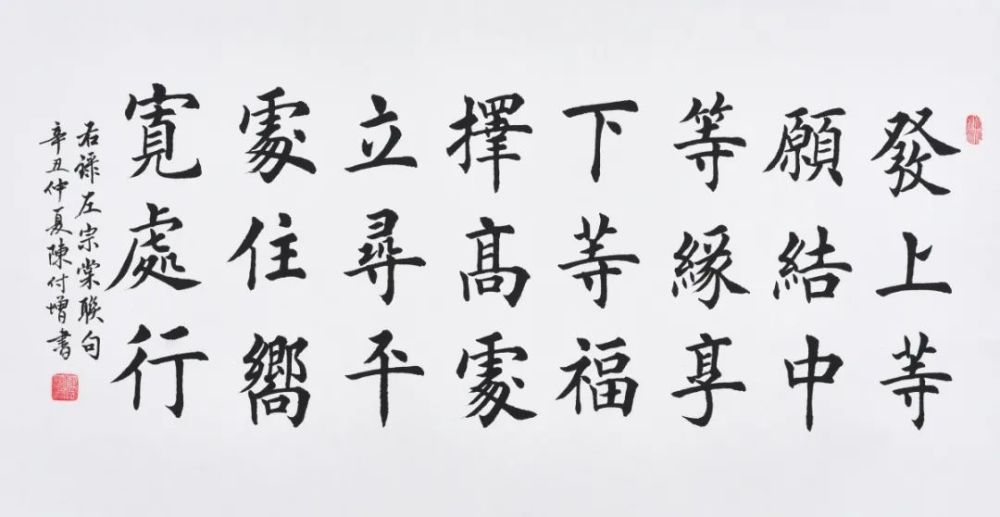 發上等
願結中
等緣享
下等福
擇髙處
立尋平
處住嚮
寬處行
右録左宗棠聯句
辛丑仲夏陳付增書